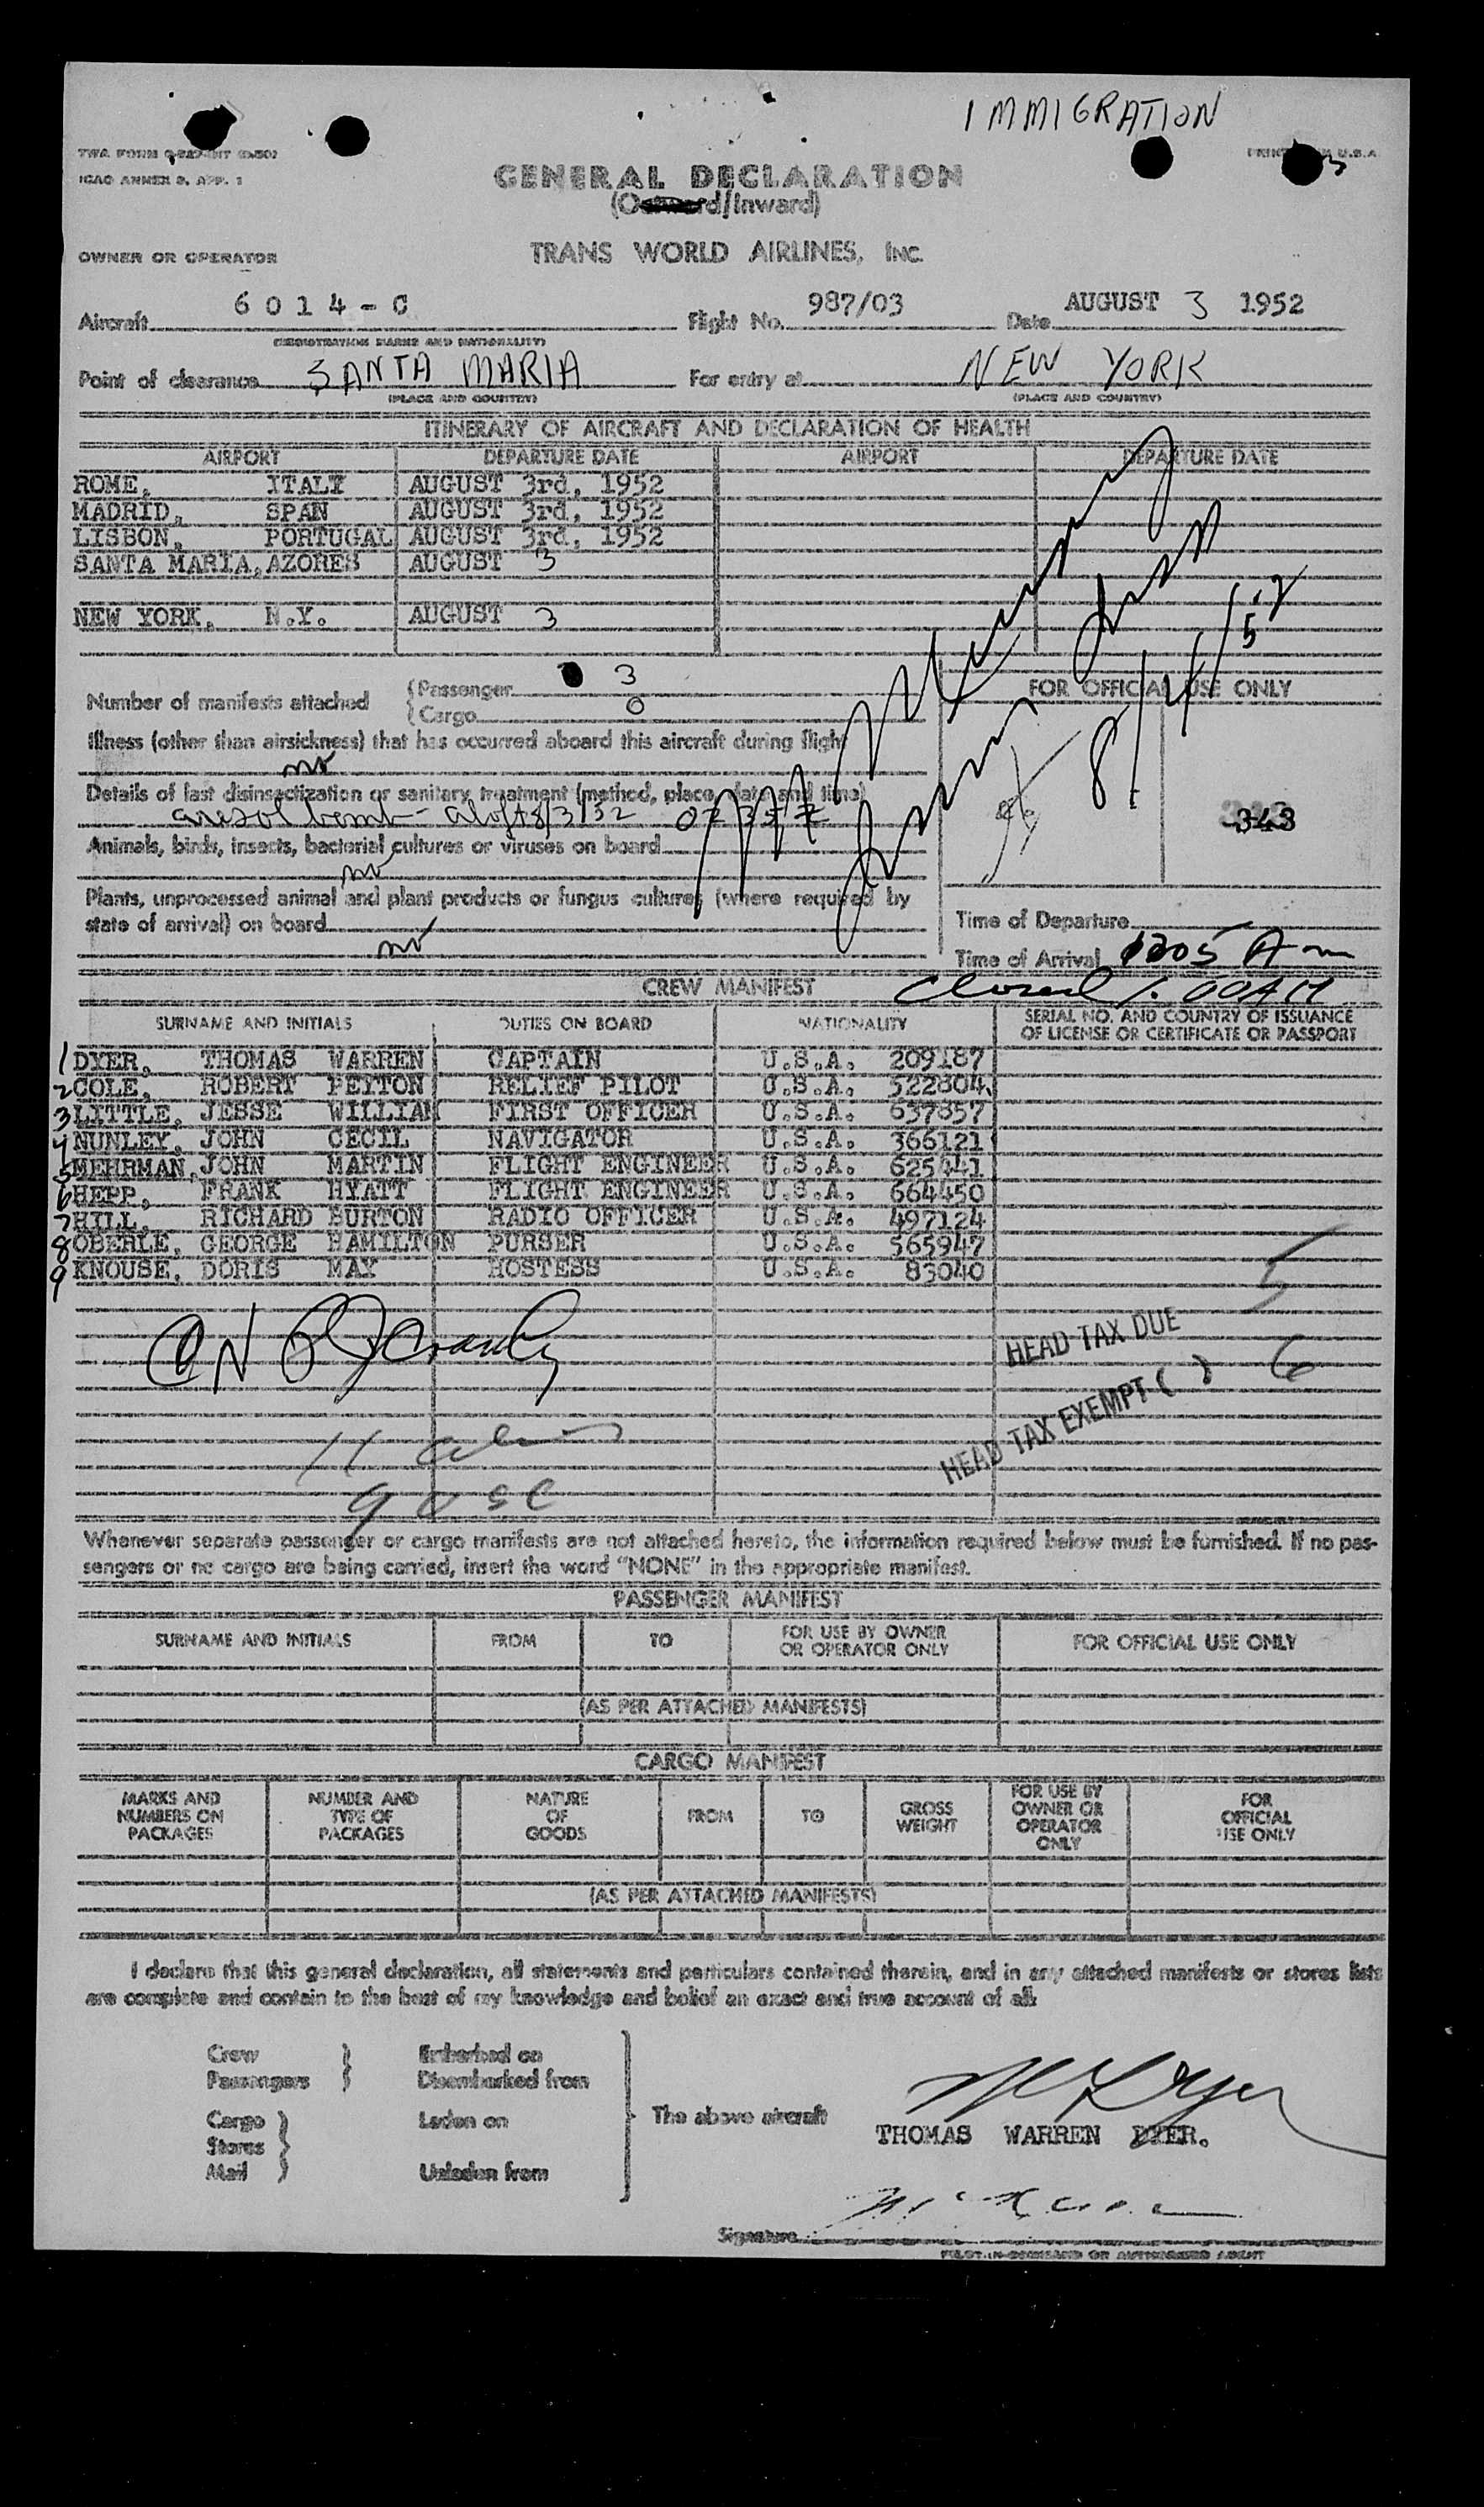 IMMIGRATION
ICAO ANNEX 9, APP. 1
GENERAL DECLARATION
/Inward)
OWNER OR OPERATOR
TRANS WORLD AIRLINES, INC.
Aircraft 6014-C Flight No. 987/03 Date AUGUST 3 1952
(REGISTRATION MARKS AND NATIONALITY)
Point of clearance SANTA MARIA For entry at NEW YORK
(PLACE AND COUNTRY) (PLACE AND COUNTRY)
ITINERARY OF AIRCRAFT AND DECLARATION OF HEALTH
AIRPORT DEPARTURE DATE AIRPORT DEPARTURE DATE
ROME, ITALY AUGUST 3rd, 1952
MADRID, SPAN AUGUST 3rd, 1952
LISBON, PORTUGAL AUGUST 3rd, 1952
SANTA MARIA, AZORES AUGUST 3
NEW YORK, N.Y. AUGUST 3
8/4/52
Number of manifests attached
Passenger 3
Cargo 0
FOR OFFICIAL USE ONLY
Illness (other than airsickness) that has occurred aboard this aircraft during flight
no
Details of last disinsectization or sanitary treatment (method, place, date and time)
bomb - aloft 8/3/52
343
Animals, birds, insects, bacterial cultures or viruses on board
no
Plants, unprocessed animal and plant products or fungus cultures (where required by
state of arrival) on board
no
Time of Departure
Time of Arrival 1205 Am
Closed 1:00AM
CREW MANIFEST
SURNAME AND INITIALS DUTIES ON BOARD NATIONALITY SERIAL NO. AND COUNTRY OF ISSUANCE
OF LICENSE OR CERTIFICATE OR PASSPORT
1 DYER, THOMAS WARREN CAPTAIN U.S.A. 209187
2 COLE, ROBERT PEITON RELIEF PILOT U.S.A. 522804
3 LITTLE, JESSE WILLIAM FIRST OFFICER U.S.A. 637857
4 NUNLEY, JOHN CECIL NAVIGATOR U.S.A. 366121
5 MEHRMAN, JOHN MARTIN FLIGHT ENGINEER U.S.A. 625441
6 HEPP, FRANK HYATT FLIGHT ENGINEER U.S.A. 664450
7 HILL, RICHARD BURTON RADIO OFFICER U.S.A. 497124
8 OBERLE, GEORGE HAMILTON PURSER U.S.A. 565947
9 KNOUSE, DORIS MAY HOSTESS U.S.A. 83040
5
HEAD TAX DUE
6
HEAD TAX EXEMPT ( )
11
9 USC
Whenever separate passenger or cargo manifests are not attached hereto, the information required below must be furnished. If no pas-
sengers or no cargo are being carried, insert the word "NONE" in the appropriate manifest.
PASSENGER MANIFEST
SURNAME AND INITIALS FROM TO FOR USE BY OWNER
OR OPERATOR ONLY FOR OFFICIAL USE ONLY
(AS PER ATTACHED MANIFESTS)
CARGO MANIFEST
MARKS AND
NUMBERS ON
PACKAGES
NUMBER AND
TYPE OF
PACKAGES
NATURE
OF
GOODS
FROM
TO
GROSS
WEIGHT
FOR USE BY
OWNER OR
OPERATOR
ONLY
FOR
OFFICIAL
USE ONLY
(AS PER ATTACHED MANIFESTS)
I declare that this general declaration, all statements and particulars contained therein, and in any attached manifests or stores lists
are complete and contain to the best of my knowledge and belief an exact and true account of all:
Crew Embarked on
Passengers Disembarked from
Cargo Laden on
The above aircraft
Stores
Mail Unladen from
THOMAS WARREN DYER.
Signature
PILOT-IN-COMMAND OR AUTHORIZED AGENT